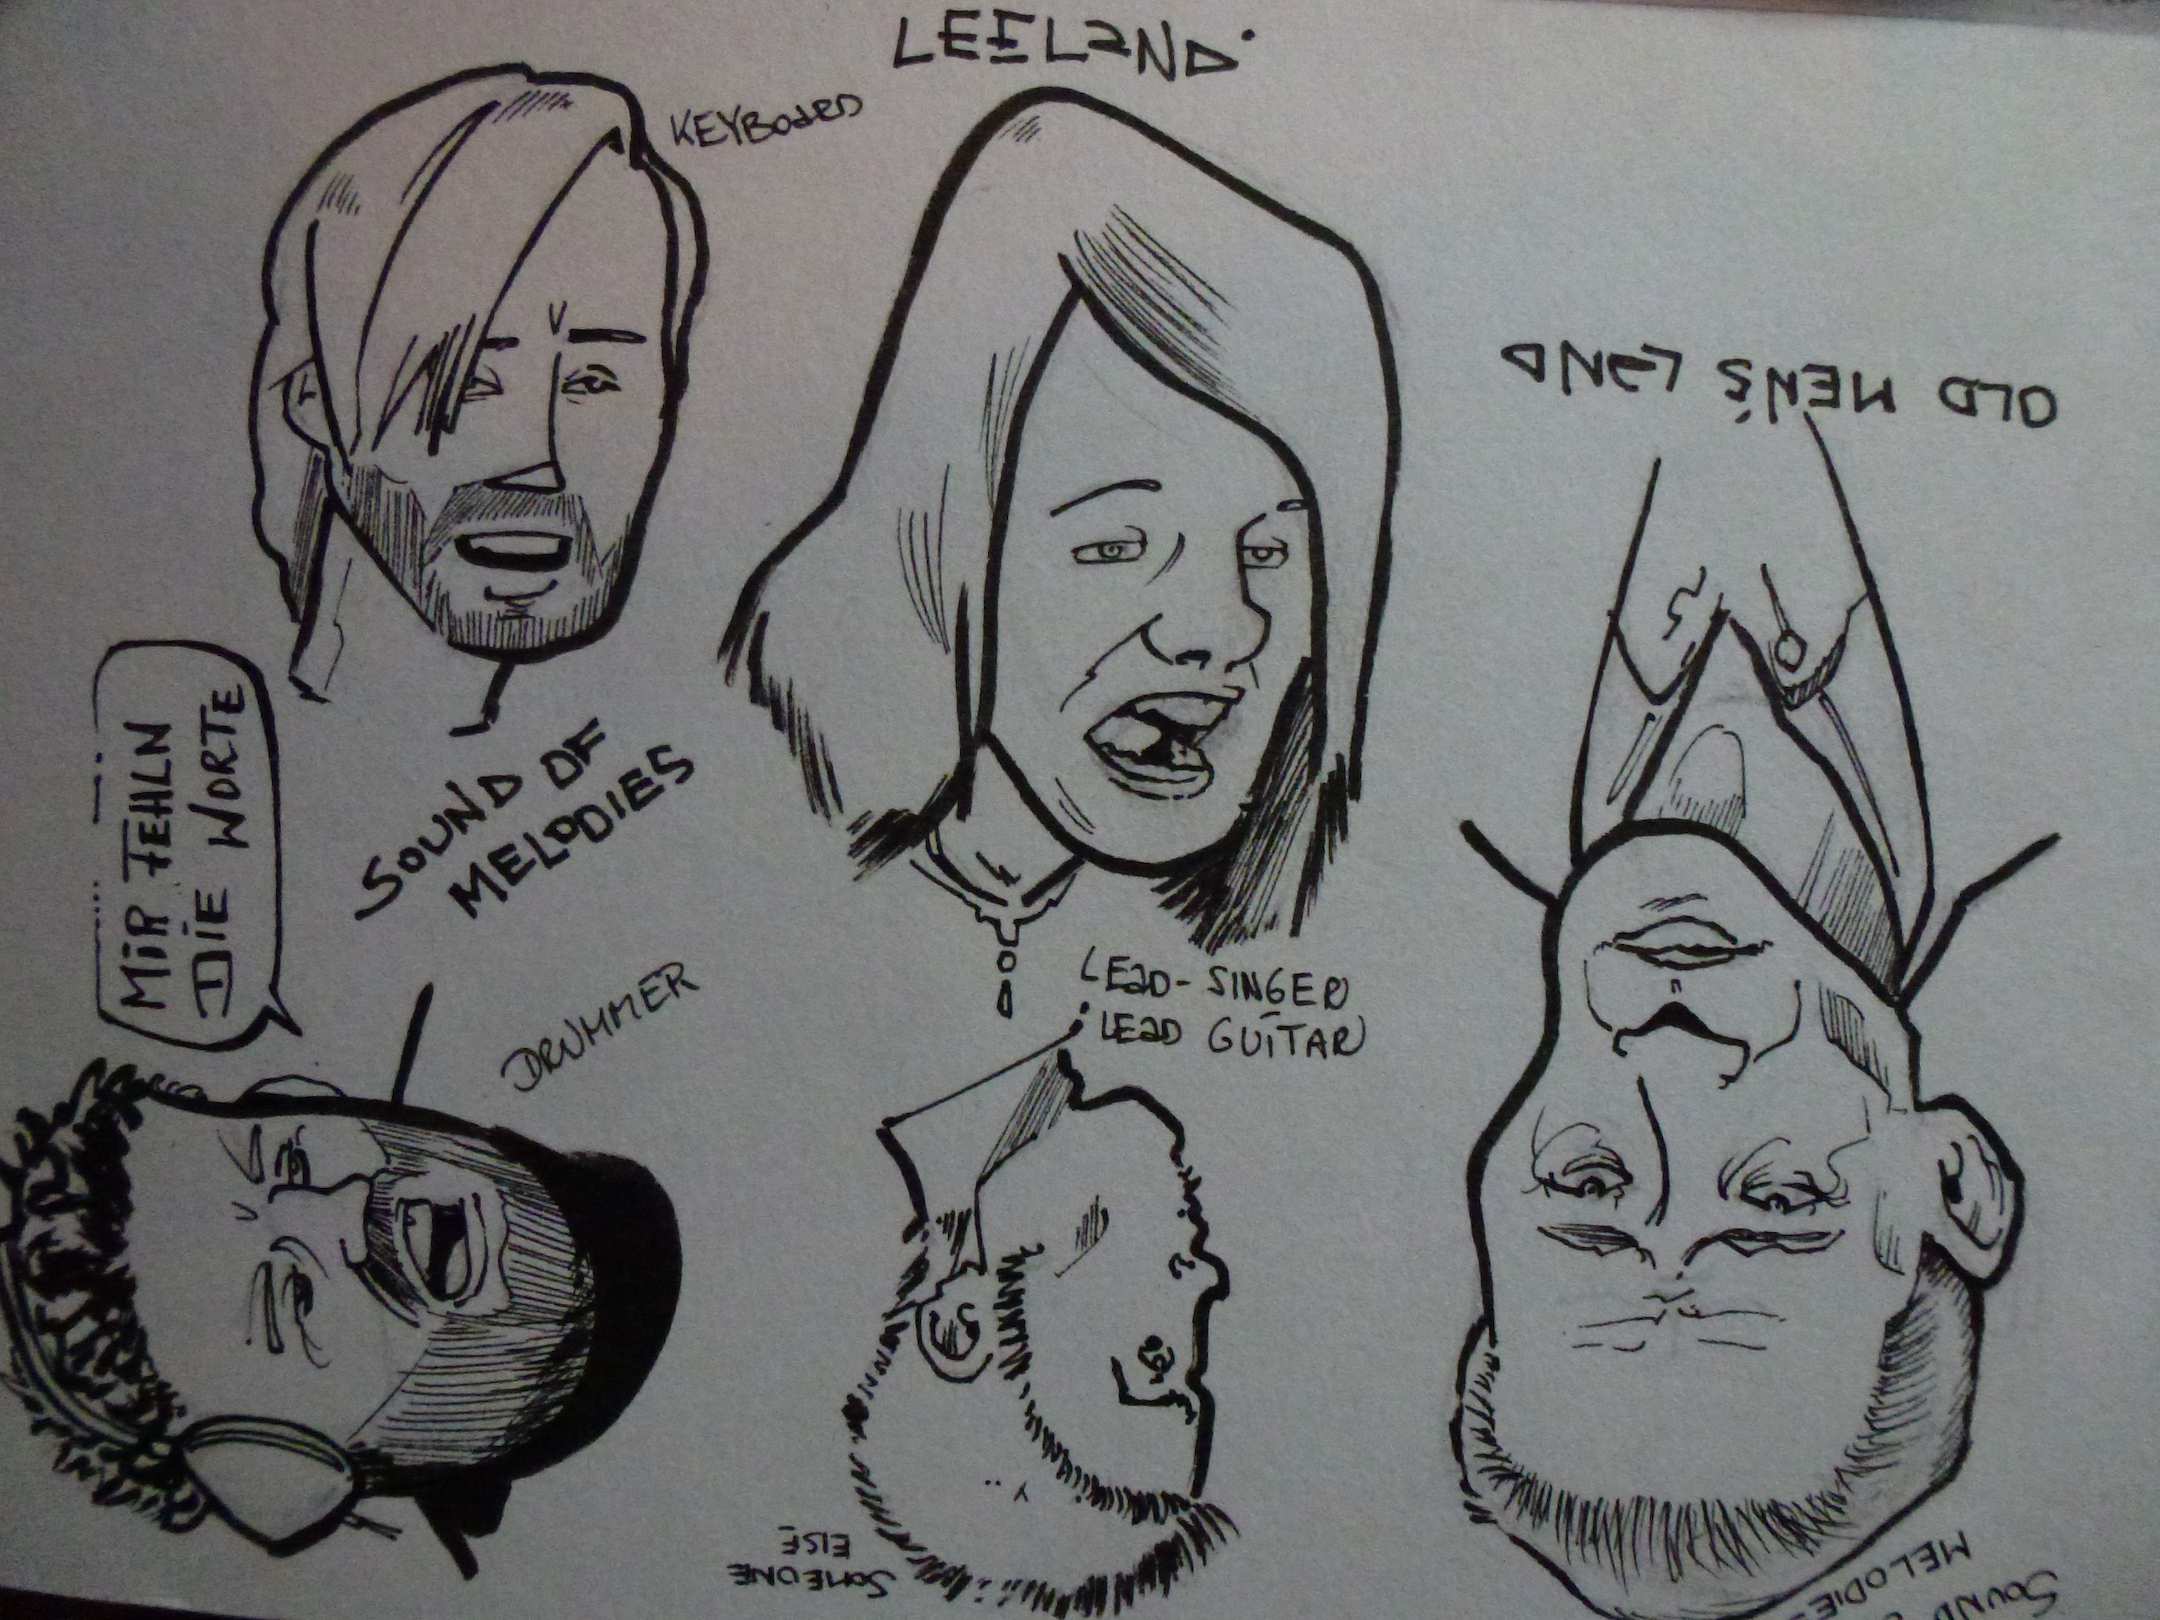 LEELAND.
KEYBOARD
OLD MEN'S LAND
MIR FEHLN
DIE WORTE
SOUND OF
MELODIES
LEAD-SINGER
LEAD GUITAR
DRUMMER
SOMEONE
ELSE
SOUND
MELODIE